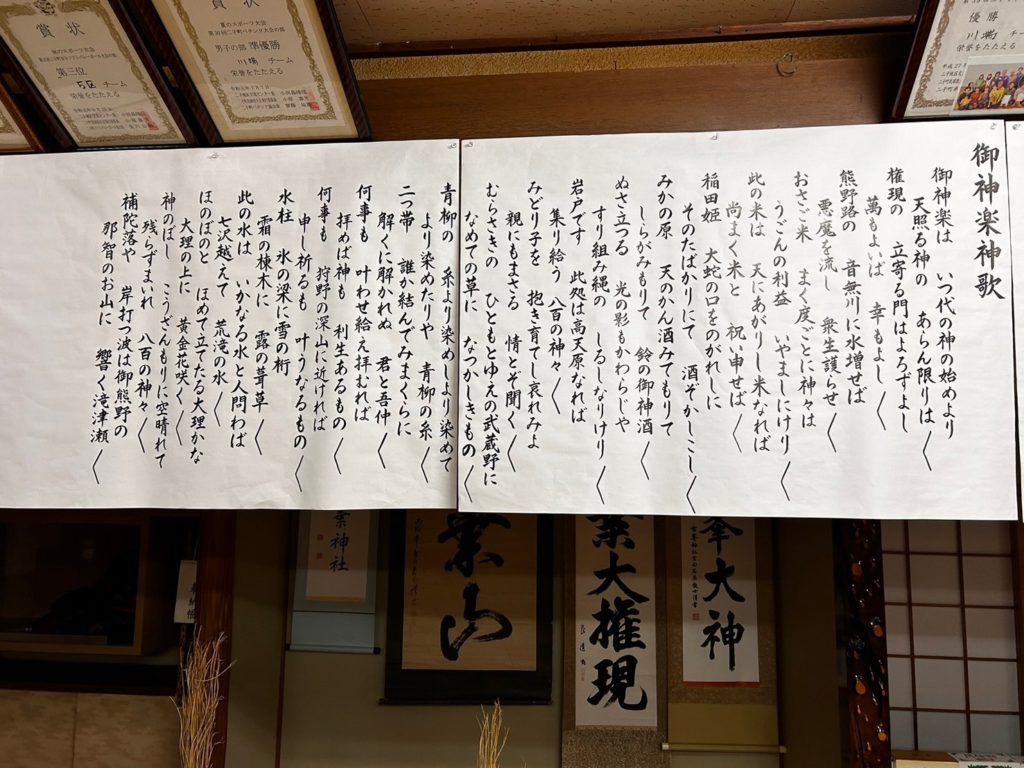 御神楽神歌
御神楽は いつ代の神の始めより
天照る神の あらん限りは 〱
権現の 立寄る門はよろずよし
萬もよいば 幸もよし 〱
熊野路の 音無川に水増せば
悪魔を流し 衆生護らせ 〱
おさご米 まく度ごとに神々は
うごんの利益 いやましにけり 〱
此の米は 天にあがりし米なれば
尚まく米と 祝い申せば 〱
稲田姫 大蛇の口をのがれしに
そのたばかりにて 酒ぞかしこし 〱
みかの原 天のかん酒みてもりて
しらがみもりて 鈴の御神酒 〱
ぬさ立つる 光の影もかわらじや
すり組み縄の しるしなりけり 〱
岩戸です 此処は高天原なれば
集り給う 八百の神々 〱
みどり子を 抱き育てし哀れみよ
親にもまさる 情とぞ聞く 〱
むらさきの ひともとゆえの武蔵野に
なめての草に なつかしきもの 〱
青柳の 糸より染めしより染めて
より染めたりや 青柳の糸 〱
二つ帯 誰か結んでみまくらに
解くに解かれぬ 君と吾仲 〱
何事も 叶わせ給え拝むれば
拝めば神も 利生あるもの 〱
何事も 狩野の深山に近ければ
申し祈るも 叶うなるもの 〱
水柱 氷の梁に雪の桁
霜の棟木に 露の葺草 〱
此の水は いかなる水と人問わば
七沢越えて 荒滝の水 〱
ほのぼのと ほめて立てたる大理かな
大理の上に 黄金花咲く 〱
神のぼし こうざんもりに空晴れて
残らずまいれ 八百の神々 〱
補陀落や 岸打つ波は御熊野の
那智のお山に 響く滝津瀬 〱
賞状
第三位
チーム
栄誉をたたえる
賞状
男子の部 準優勝
川端 チーム
栄誉をたたえる
優勝
川端 チーム
栄誉をたたえる
大神
大権現
葉山
神社